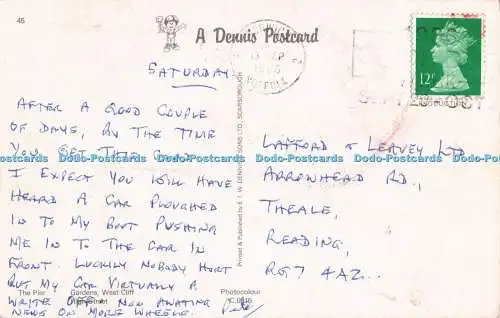 46
A Dennis Postcard
SATURDAY
AFTER A GOOD COUPLE
OF DAYS, BY THE TIME
YOU GET THIS CARD
I EXPECT YOU WILL HAVE
HEARD A CAR PLOUGHED
IN TO MY BOOT PUSHING
ME IN TO THE CAR IN
FRONT. LUCKILY NOBODY HURT
BUT MY CAR VIRTUALLY A
WRITE OFF. NOW AWATING
NEWS ON MORE WHEELS. Pete
The Pier Gardens, West Cliff
Photocolour
Printed & Published by E. T. W. DENNIS & SONS LTD., SCARBOROUGH
12P
LAFFORD & LEAVEY LTD
ARROWHEAD RD.,
THEALE,
READING,
RG7 4AZ..
Dodo-Postcards Dodo-Postcards Dodo-Postcards Dodo-Postcards Dodo-Postcards